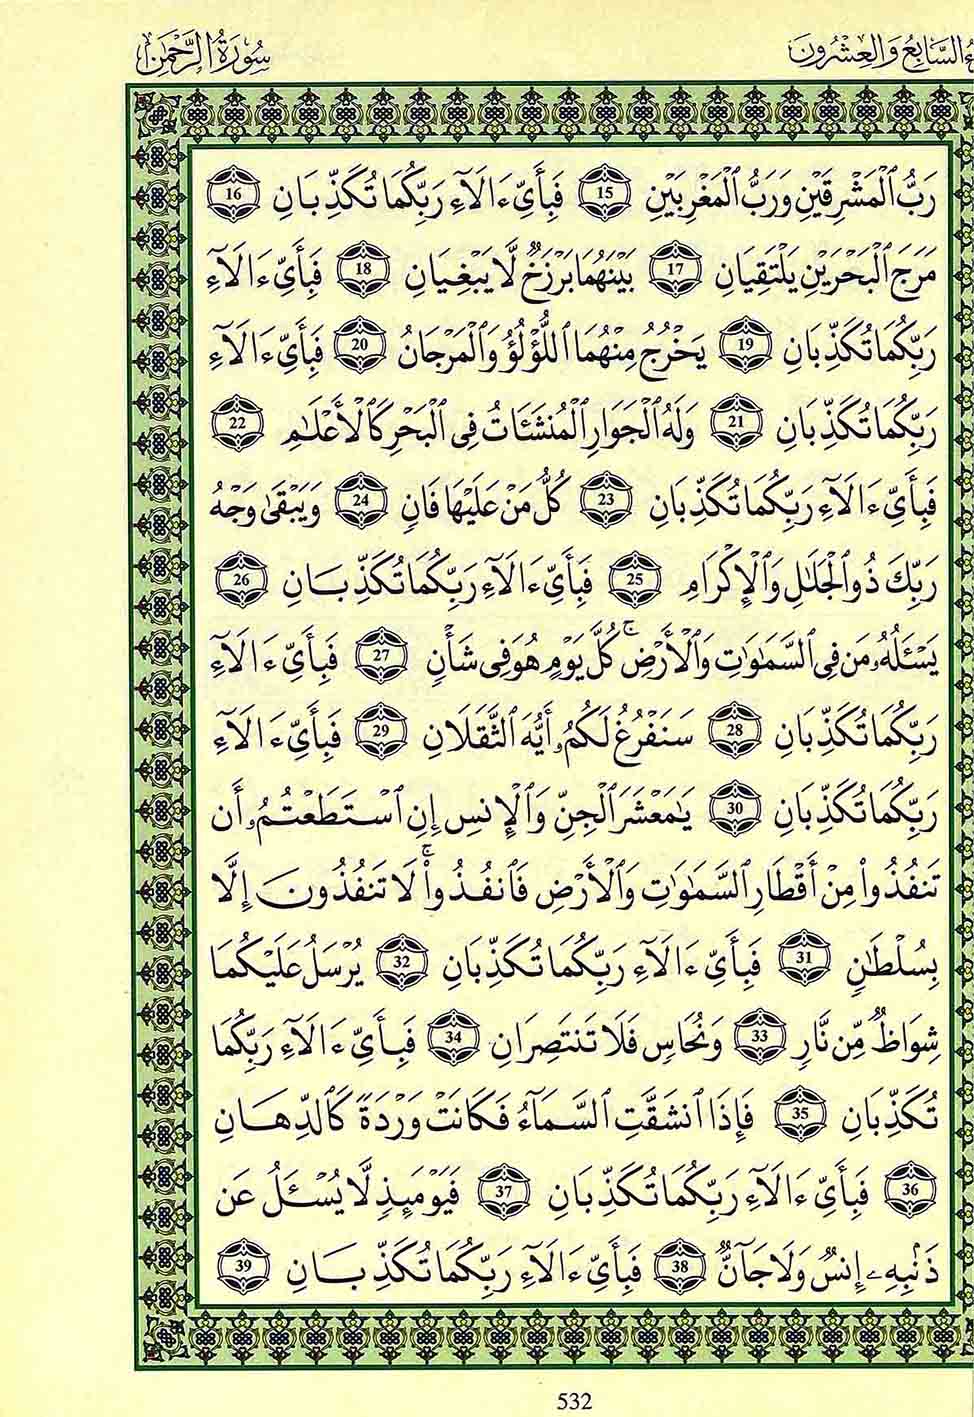 ءُ السَّابِعُ وَالعِشْرُونَ سُورَةُ الرَّحْمٰنِ
رَبُّ ٱلْمَشْرِقَيْنِ وَرَبُّ ٱلْمَغْرِبَيْنِ 15 فَبِأَيِّ ءَالَآءِ رَبِّكُمَا تُكَذِّبَانِ 16
مَرَجَ ٱلْبَحْرَيْنِ يَلْتَقِيَانِ 17 بَيْنَهُمَا بَرْزَخٌ لَّا يَبْغِيَانِ 18 فَبِأَيِّ ءَالَآءِ
رَبِّكُمَا تُكَذِّبَانِ 19 يَخْرُجُ مِنْهُمَا ٱللُّؤْلُؤُ وَٱلْمَرْجَانُ 20 فَبِأَيِّ ءَالَآءِ
رَبِّكُمَا تُكَذِّبَانِ 21 وَلَهُ ٱلْجَوَارِ ٱلْمُنشَـَٔاتُ فِي ٱلْبَحْرِ كَٱلْأَعْلَٰمِ 22
فَبِأَيِّ ءَالَآءِ رَبِّكُمَا تُكَذِّبَانِ 23 كُلُّ مَنْ عَلَيْهَا فَانٍ 24 وَيَبْقَىٰ وَجْهُ
رَبِّكَ ذُو ٱلْجَلَٰلِ وَٱلْإِكْرَامِ 25 فَبِأَيِّ ءَالَآءِ رَبِّكُمَا تُكَذِّبَانِ 26
يَسْـَٔلُهُۥ مَن فِي ٱلسَّمَٰوَٰتِ وَٱلْأَرْضِۚ كُلَّ يَوْمٍ هُوَ فِي شَأْنٍ 27 فَبِأَيِّ ءَالَآءِ
رَبِّكُمَا تُكَذِّبَانِ 28 سَنَفْرُغُ لَكُمُۥ أَيُّهَ ٱلثَّقَلَانِ 29 فَبِأَيِّ ءَالَآءِ
رَبِّكُمَا تُكَذِّبَانِ 30 يَٰمَعْشَرَ ٱلْجِنِّ وَٱلْإِنسِ إِنِ ٱسْتَطَعْتُمُۥ أَن
تَنفُذُوا۟ مِنْ أَقْطَارِ ٱلسَّمَٰوَٰتِ وَٱلْأَرْضِ فَٱنفُذُوا۟ۚ لَا تَنفُذُونَ إِلَّا
بِسُلْطَٰنٍ 31 فَبِأَيِّ ءَالَآءِ رَبِّكُمَا تُكَذِّبَانِ 32 يُرْسَلُ عَلَيْكُمَا
شِوَاظٌ مِّن نَّارٍ 33 وَنُحَاسٍ فَلَا تَنتَصِرَانِ 34 فَبِأَيِّ ءَالَآءِ رَبِّكُمَا
تُكَذِّبَانِ 35 فَإِذَا ٱنشَقَّتِ ٱلسَّمَآءُ فَكَانَتْ وَرْدَةً كَٱلدِّهَانِ
36 فَبِأَيِّ ءَالَآءِ رَبِّكُمَا تُكَذِّبَانِ 37 فَيَوْمَئِذٍ لَّا يُسْـَٔلُ عَن
ذَنۢبِهِۦ إِنسٌ وَلَا جَآنٌّ 38 فَبِأَيِّ ءَالَآءِ رَبِّكُمَا تُكَذِّبَانِ 39
532